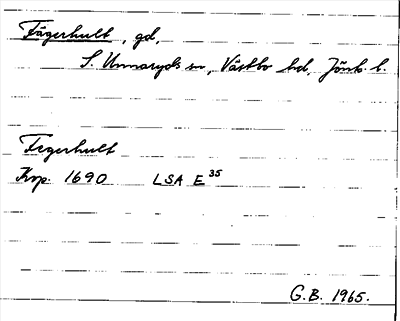 Fägerhult, gd,
S. Unnaryds sn, Västbo hd, Jönk. l.
Fegerhult
Krp. 1690 LSA E 35
G.B. 1965.